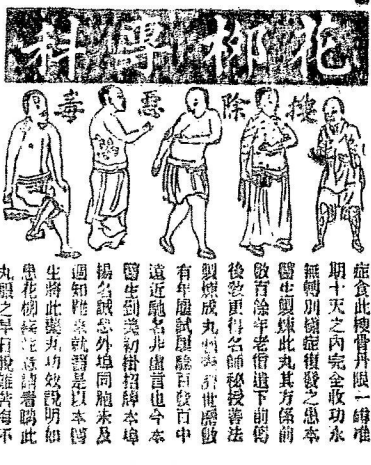 花柳專科
搜除惡毒
症食此搜骨丹限一准
期十天之內完全收功永
無轉別樣症復發之患本
醫生製煉此丸其方係前
數百餘年老僧遺下前
後數更得名師秘授善法
製煉成丸
有年屢試屢驗百發百中
遠近馳名非虛言也今本
醫生到美初掛招牌本埠
揚名誠恐外埠同胞未及
週知難來就醫是以本醫
生將此藥丸功效說明如
患花柳諸君購此
丸服之早有脫離苦海不